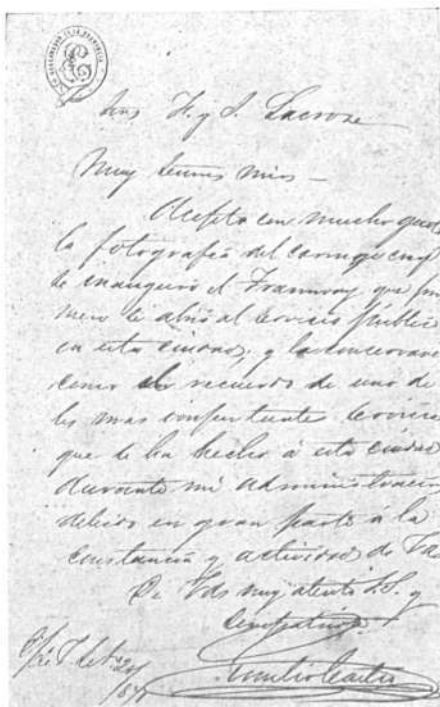 Sres F. y J. Lacroze
Muy Señores mios —
Acepto con mucho gusto
la fotografia del carruage con q
se inauguró el Tramway que pri
mero se abrió al servicio public
en esta ciudad; y la conservaré
como un recuerdo de uno de
los mas importante servicio
que se ha hecho á esta ciudad
durante mi administracion
debido en gran parte á la
constancia y actividad de Vds
De Vds muy atento S.S. y
Compatriota.
Emilio Castro